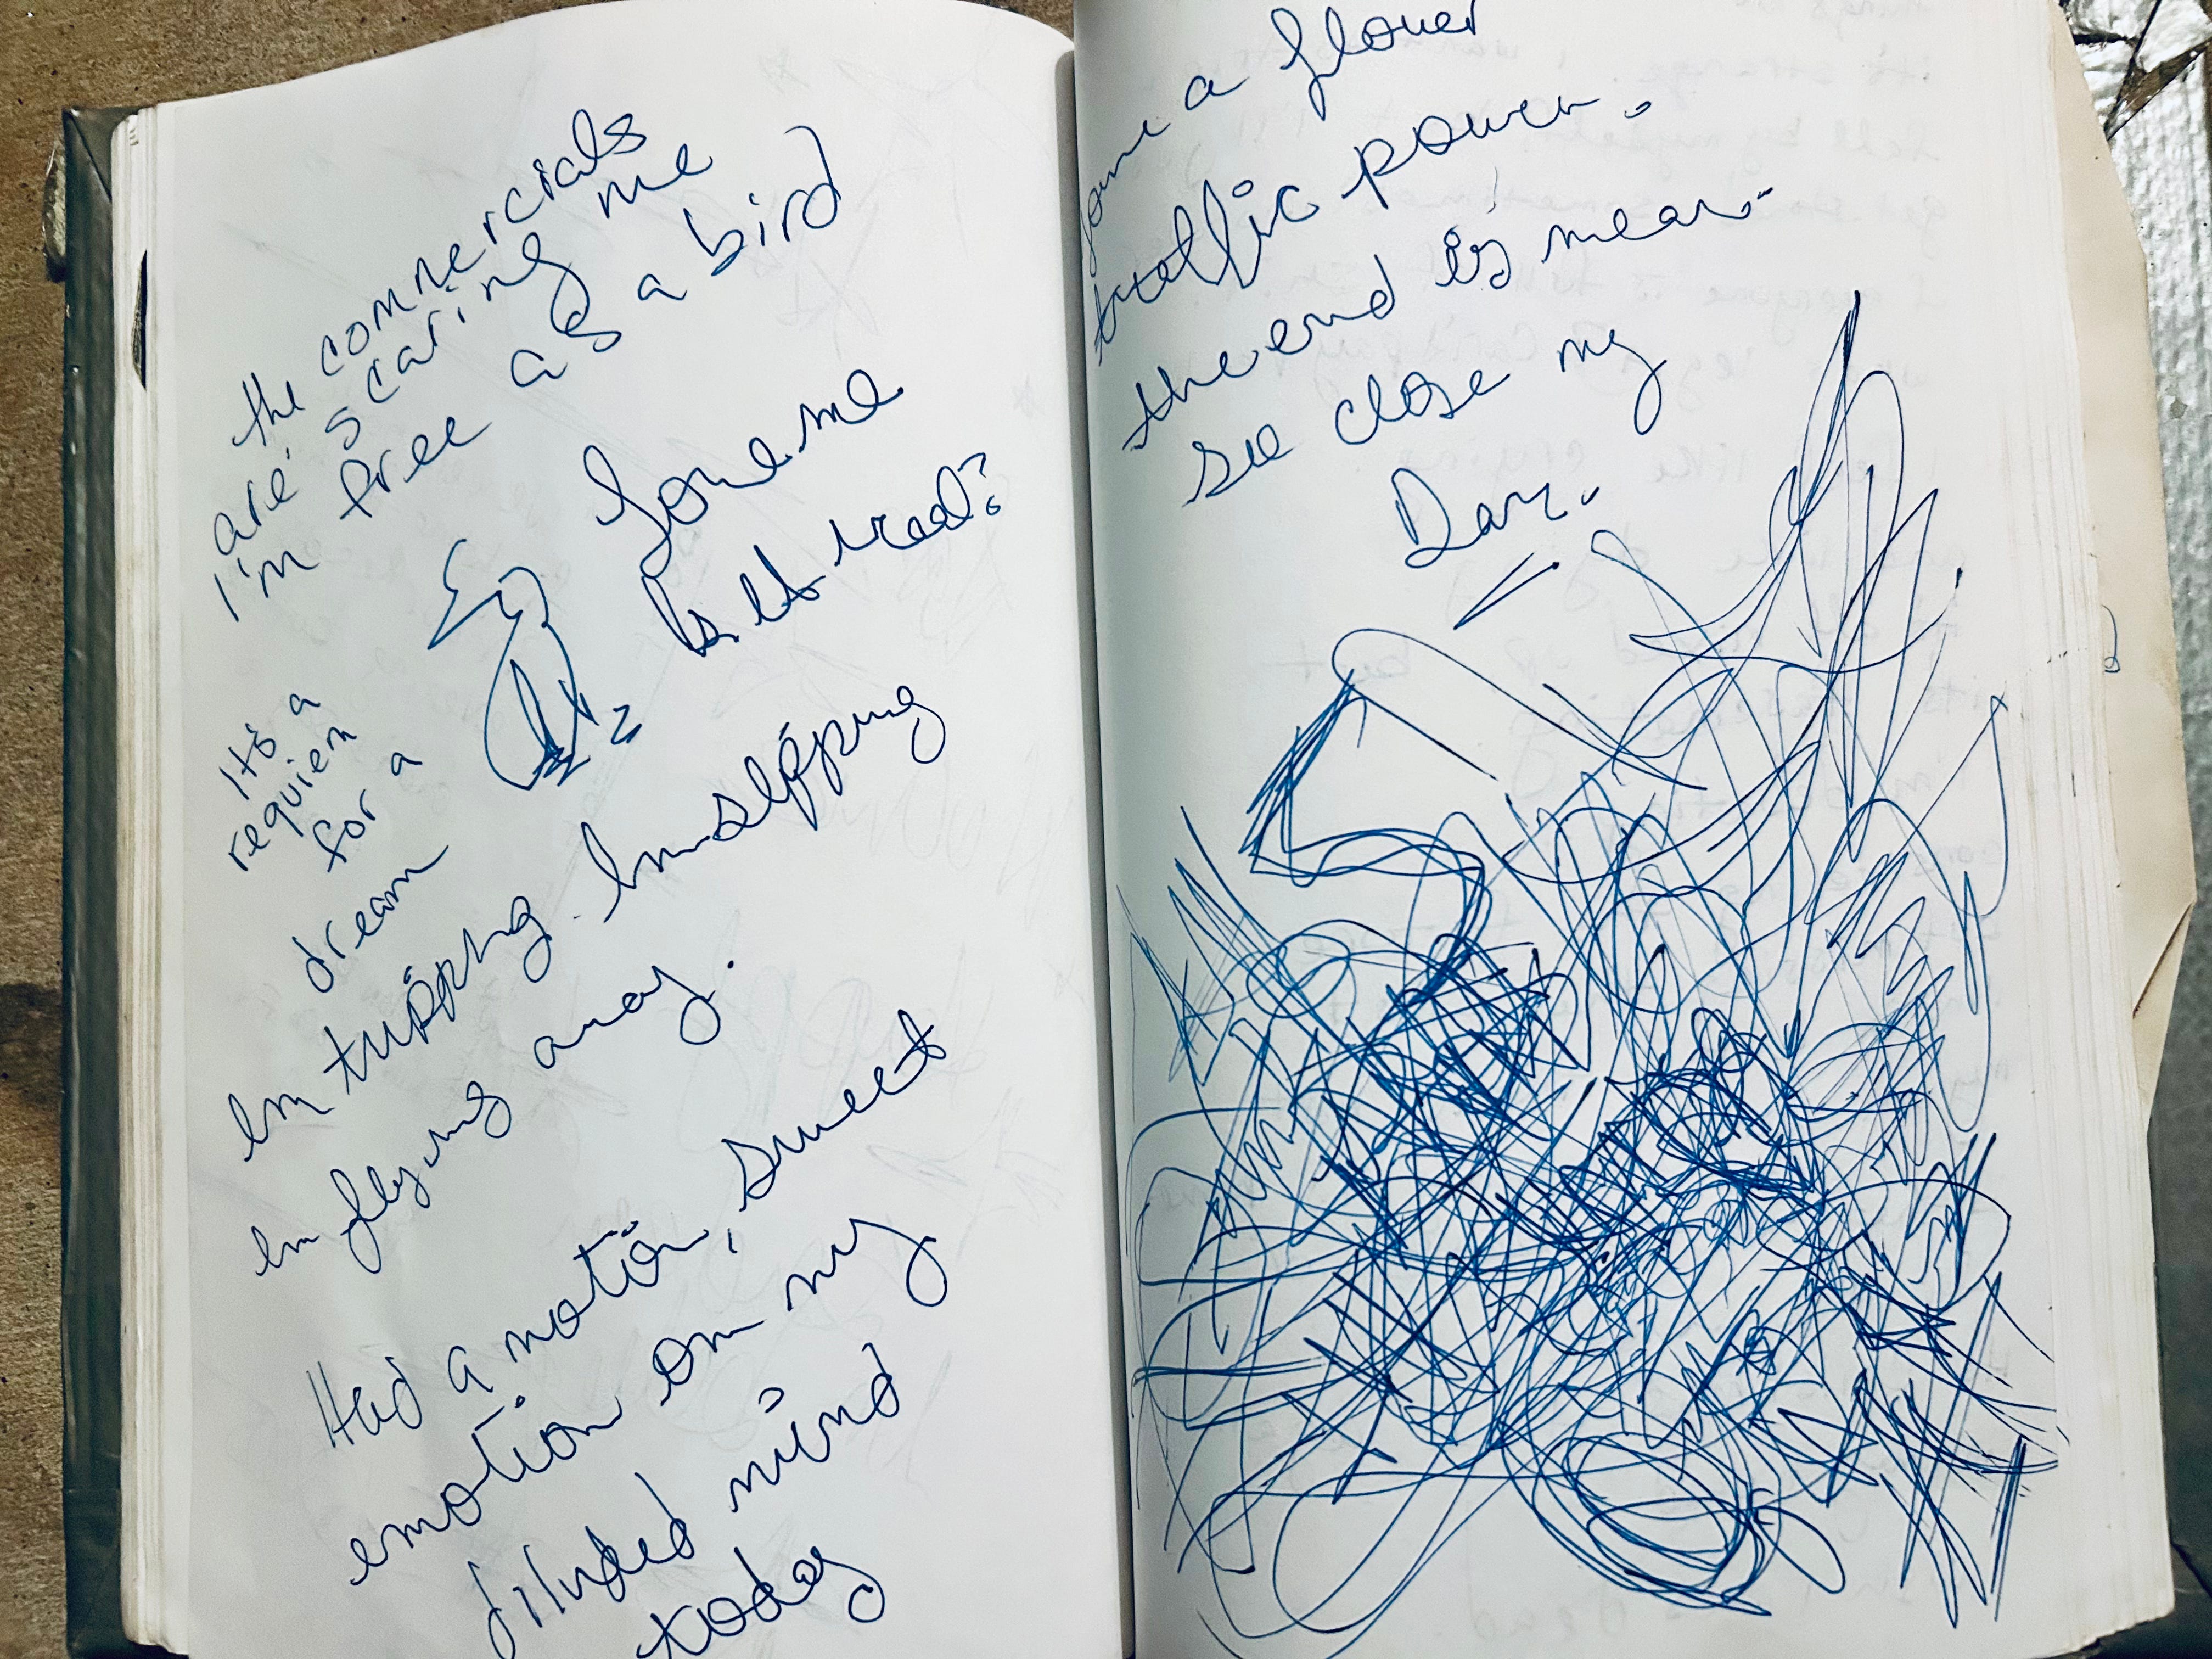 the commercials
are scaring me
I'm free as a bird
me
It's a
requiem
for a
dream
Im tripping. Im slipping
Im flying away.
Had a motion, sweet
emotion on my
diluded mind
today
a flower
traffic power.
the end is near.
see close my
Day.